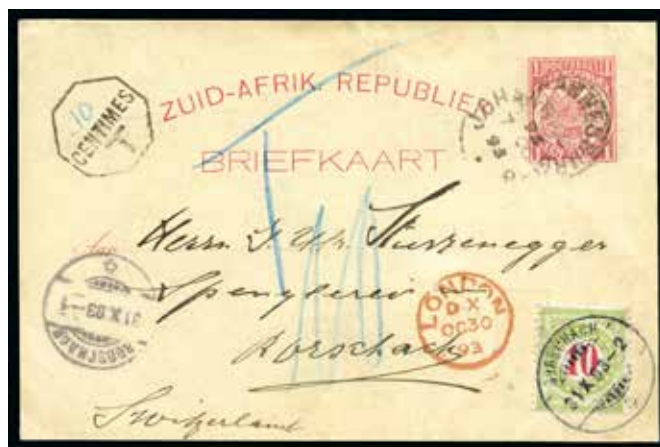 ZUID-AFRIK. REPUBLIEK
BRIEFKAART
10
CENTIMES
T
JOHANNESBURG
93
Aan
Herrn J. Ulr. Sturzenegger
Spenglerei
Rorschach
Switzerland
LONDON
D X
OC 30
93
RORSCHACH
31 X 93
10
RORSCHACH
31 X 93-2